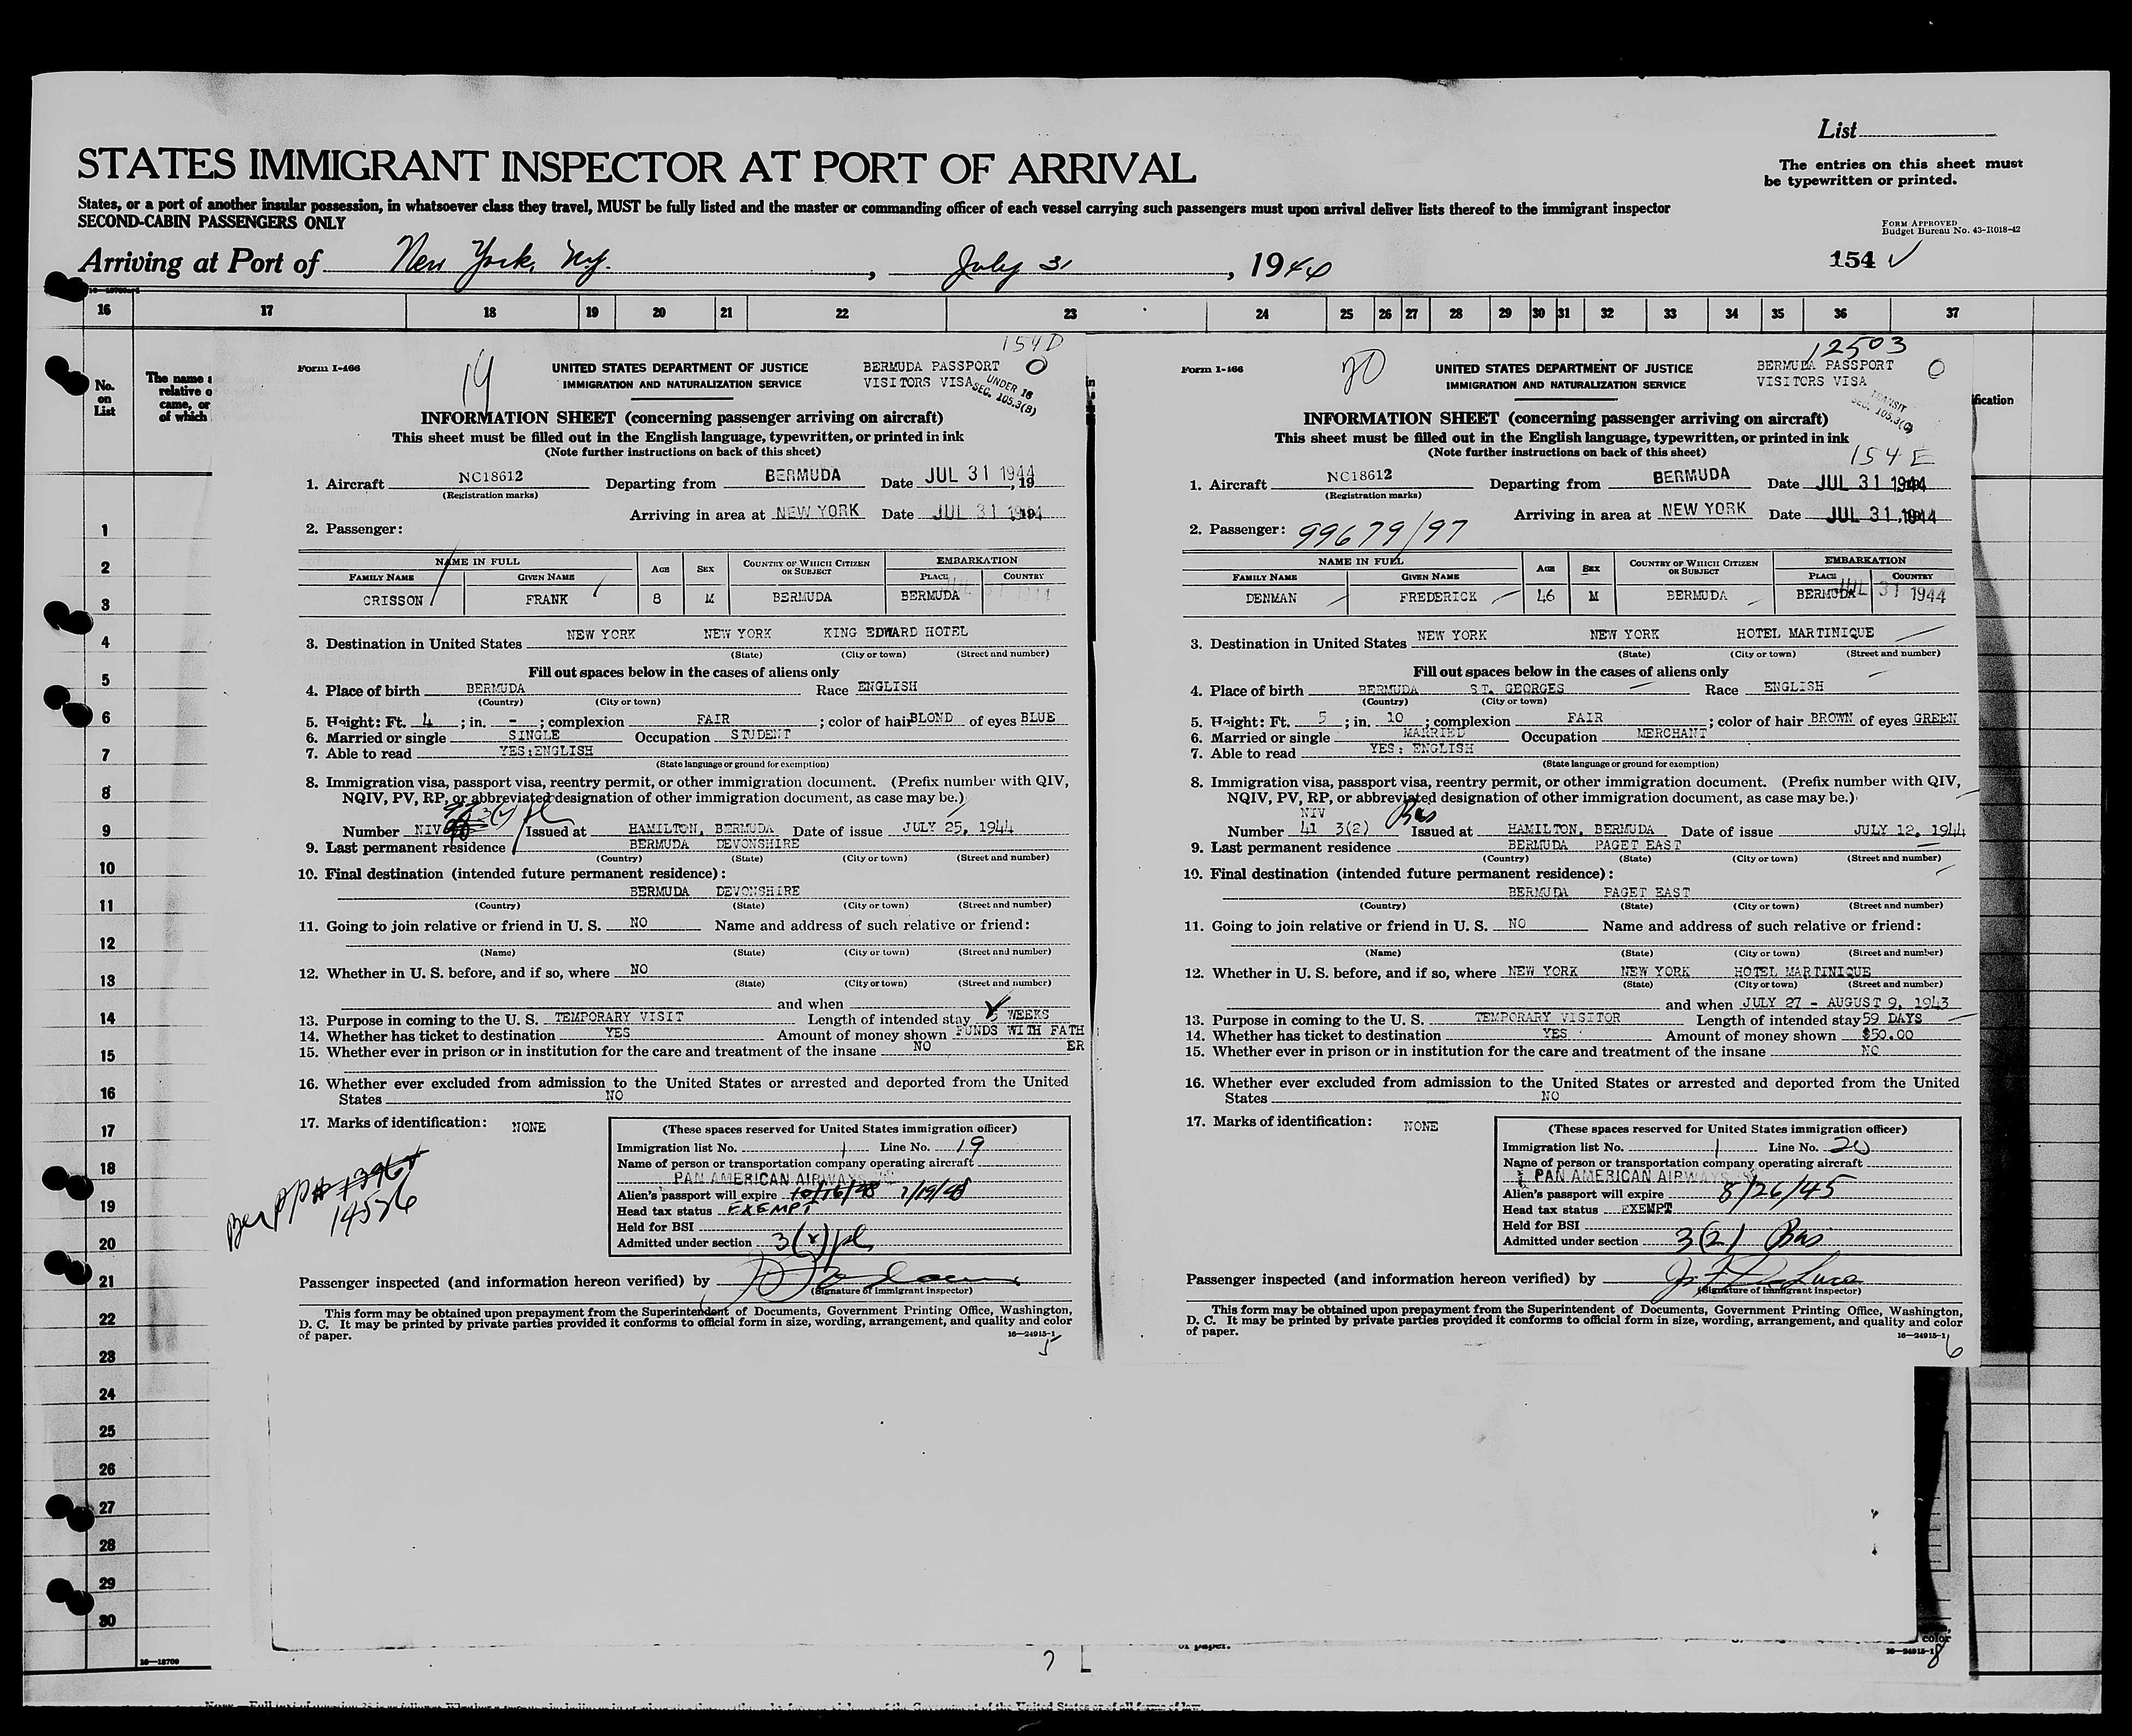 List
STATES IMMIGRANT INSPECTOR AT PORT OF ARRIVAL
The entries on this sheet must
be typewritten or printed.
States, or a port of another insular possession, in whatsoever class they travel, MUST be fully listed and the master or commanding officer of each vessel carrying such passengers must upon arrival deliver lists thereof to the immigrant inspector
SECOND-CABIN PASSENGERS ONLY
FORM APPROVED
Budget Bureau No. 43-R018-42
Arriving at Port of New York, N.Y. , July 31 , 1944
154
16 17 18 19 20 21 22 23 24 25 26 27 28 29 30 31 32 33 34 35 36 37
No.
on
List
The name
relative o
came, or
of which
1
2
3
4
5
6
7
8
9
10
11
12
13
14
15
16
17
18
19
20
21
22
23
24
25
26
27
28
29
30
16—18709
154 D
Form I-466
19
UNITED STATES DEPARTMENT OF JUSTICE
IMMIGRATION AND NATURALIZATION SERVICE
BERMUDA PASSPORT
VISITORS VISA
UNDER 16
SEC. 105.3(B)
INFORMATION SHEET (concerning passenger arriving on aircraft)
This sheet must be filled out in the English language, typewritten, or printed in ink
(Note further instructions on back of this sheet)
1. Aircraft NC18612 Departing from BERMUDA Date JUL 31 1944, 19
(Registration marks)
Arriving in area at NEW YORK Date JUL 31 1944
2. Passenger:
NAME IN FULL AGE SEX COUNTRY OF WHICH CITIZEN OR SUBJECT EMBARKATION
FAMILY NAME GIVEN NAME PLACE COUNTRY
CRISSON FRANK 8 M BERMUDA BERMUDA
3. Destination in United States NEW YORK NEW YORK KING EDWARD HOTEL
(State) (City or town) (Street and number)
Fill out spaces below in the cases of aliens only
4. Place of birth BERMUDA Race ENGLISH
(Country) (City or town)
5. Height: Ft. 4 ; in. - ; complexion FAIR ; color of hair BLOND of eyes BLUE
6. Married or single SINGLE Occupation STUDENT
7. Able to read YES:ENGLISH
(State language or ground for exemption)
8. Immigration visa, passport visa, reentry permit, or other immigration document. (Prefix number with QIV,
NQIV, PV, RP, or abbreviated designation of other immigration document, as case may be.)
Number NIV Issued at HAMILTON, BERMUDA Date of issue JULY 25, 1944
9. Last permanent residence BERMUDA DEVONSHIRE
(Country) (State) (City or town) (Street and number)
10. Final destination (intended future permanent residence):
BERMUDA DEVONSHIRE
(Country) (State) (City or town) (Street and number)
11. Going to join relative or friend in U. S. NO Name and address of such relative or friend:
(Name) (State) (City or town) (Street and number)
12. Whether in U. S. before, and if so, where NO
(State) (City or town) (Street and number)
and when
13. Purpose in coming to the U. S. TEMPORARY VISIT Length of intended stay WEEKS
14. Whether has ticket to destination YES Amount of money shown FUNDS WITH FATH
ER
15. Whether ever in prison or in institution for the care and treatment of the insane NO
16. Whether ever excluded from admission to the United States or arrested and deported from the United
States NO
17. Marks of identification: NONE
(These spaces reserved for United States immigration officer)
Immigration list No. 1 Line No. 19
Name of person or transportation company operating aircraft
PAN AMERICAN AIRWAYS
Alien's passport will expire 10/16/48 7/19/48
Head tax status EXEMPT
Held for BSI
Admitted under section 3(2)
14536
Passenger inspected (and information hereon verified) by
(Signature of immigrant inspector)
This form may be obtained upon prepayment from the Superintendent of Documents, Government Printing Office, Washington,
D. C. It may be printed by private parties provided it conforms to official form in size, wording, arrangement, and quality and color
of paper.
16—24915-1
5
12503
Form I-466
20
UNITED STATES DEPARTMENT OF JUSTICE
IMMIGRATION AND NATURALIZATION SERVICE
BERMUDA PASSPORT
VISITORS VISA
TRANSIT
SEC. 105.3(C)
INFORMATION SHEET (concerning passenger arriving on aircraft)
This sheet must be filled out in the English language, typewritten, or printed in ink
(Note further instructions on back of this sheet)
154 E
1. Aircraft NC18612 Departing from BERMUDA Date JUL 31 1944
(Registration marks)
Arriving in area at NEW YORK Date JUL 31, 1944
2. Passenger: 99679/97
NAME IN FULL AGE SEX COUNTRY OF WHICH CITIZEN OR SUBJECT EMBARKATION
FAMILY NAME GIVEN NAME PLACE COUNTRY
DENMAN FREDERICK 46 M BERMUDA BERMUDA JUL 31 1944
3. Destination in United States NEW YORK NEW YORK HOTEL MARTINIQUE
(State) (City or town) (Street and number)
Fill out spaces below in the cases of aliens only
4. Place of birth BERMUDA ST. GEORGES Race ENGLISH
(Country) (City or town)
5. Height: Ft. 5 ; in. 10 ; complexion FAIR ; color of hair BROWN of eyes GREEN
6. Married or single MARRIED Occupation MERCHANT
7. Able to read YES: ENGLISH
(State language or ground for exemption)
8. Immigration visa, passport visa, reentry permit, or other immigration document. (Prefix number with QIV,
NQIV, PV, RP, or abbreviated designation of other immigration document, as case may be.)
NIV
Number 41 3(2) Issued at HAMILTON, BERMUDA Date of issue JULY 12, 1944
9. Last permanent residence BERMUDA PAGET EAST
(Country) (State) (City or town) (Street and number)
10. Final destination (intended future permanent residence):
BERMUDA PAGET EAST
(Country) (State) (City or town) (Street and number)
11. Going to join relative or friend in U. S. NO Name and address of such relative or friend:
(Name) (State) (City or town) (Street and number)
12. Whether in U. S. before, and if so, where NEW YORK NEW YORK HOTEL MARTINIQUE
(State) (City or town) (Street and number)
and when JULY 27 - AUGUST 9, 1943
13. Purpose in coming to the U. S. TEMPORARY VISITOR Length of intended stay 59 DAYS
14. Whether has ticket to destination YES Amount of money shown $50.00
15. Whether ever in prison or in institution for the care and treatment of the insane NO
16. Whether ever excluded from admission to the United States or arrested and deported from the United
States NO
17. Marks of identification: NONE
(These spaces reserved for United States immigration officer)
Immigration list No. 1 Line No. 20
Name of person or transportation company operating aircraft
PAN AMERICAN AIRWAYS
Alien's passport will expire 8/26/45
Head tax status EXEMPT
Held for BSI
Admitted under section 3(2)
Passenger inspected (and information hereon verified) by
(Signature of immigrant inspector)
This form may be obtained upon prepayment from the Superintendent of Documents, Government Printing Office, Washington,
D. C. It may be printed by private parties provided it conforms to official form in size, wording, arrangement, and quality and color
of paper.
16—24915-1
6
of paper.
color
16—24915-1
8
7